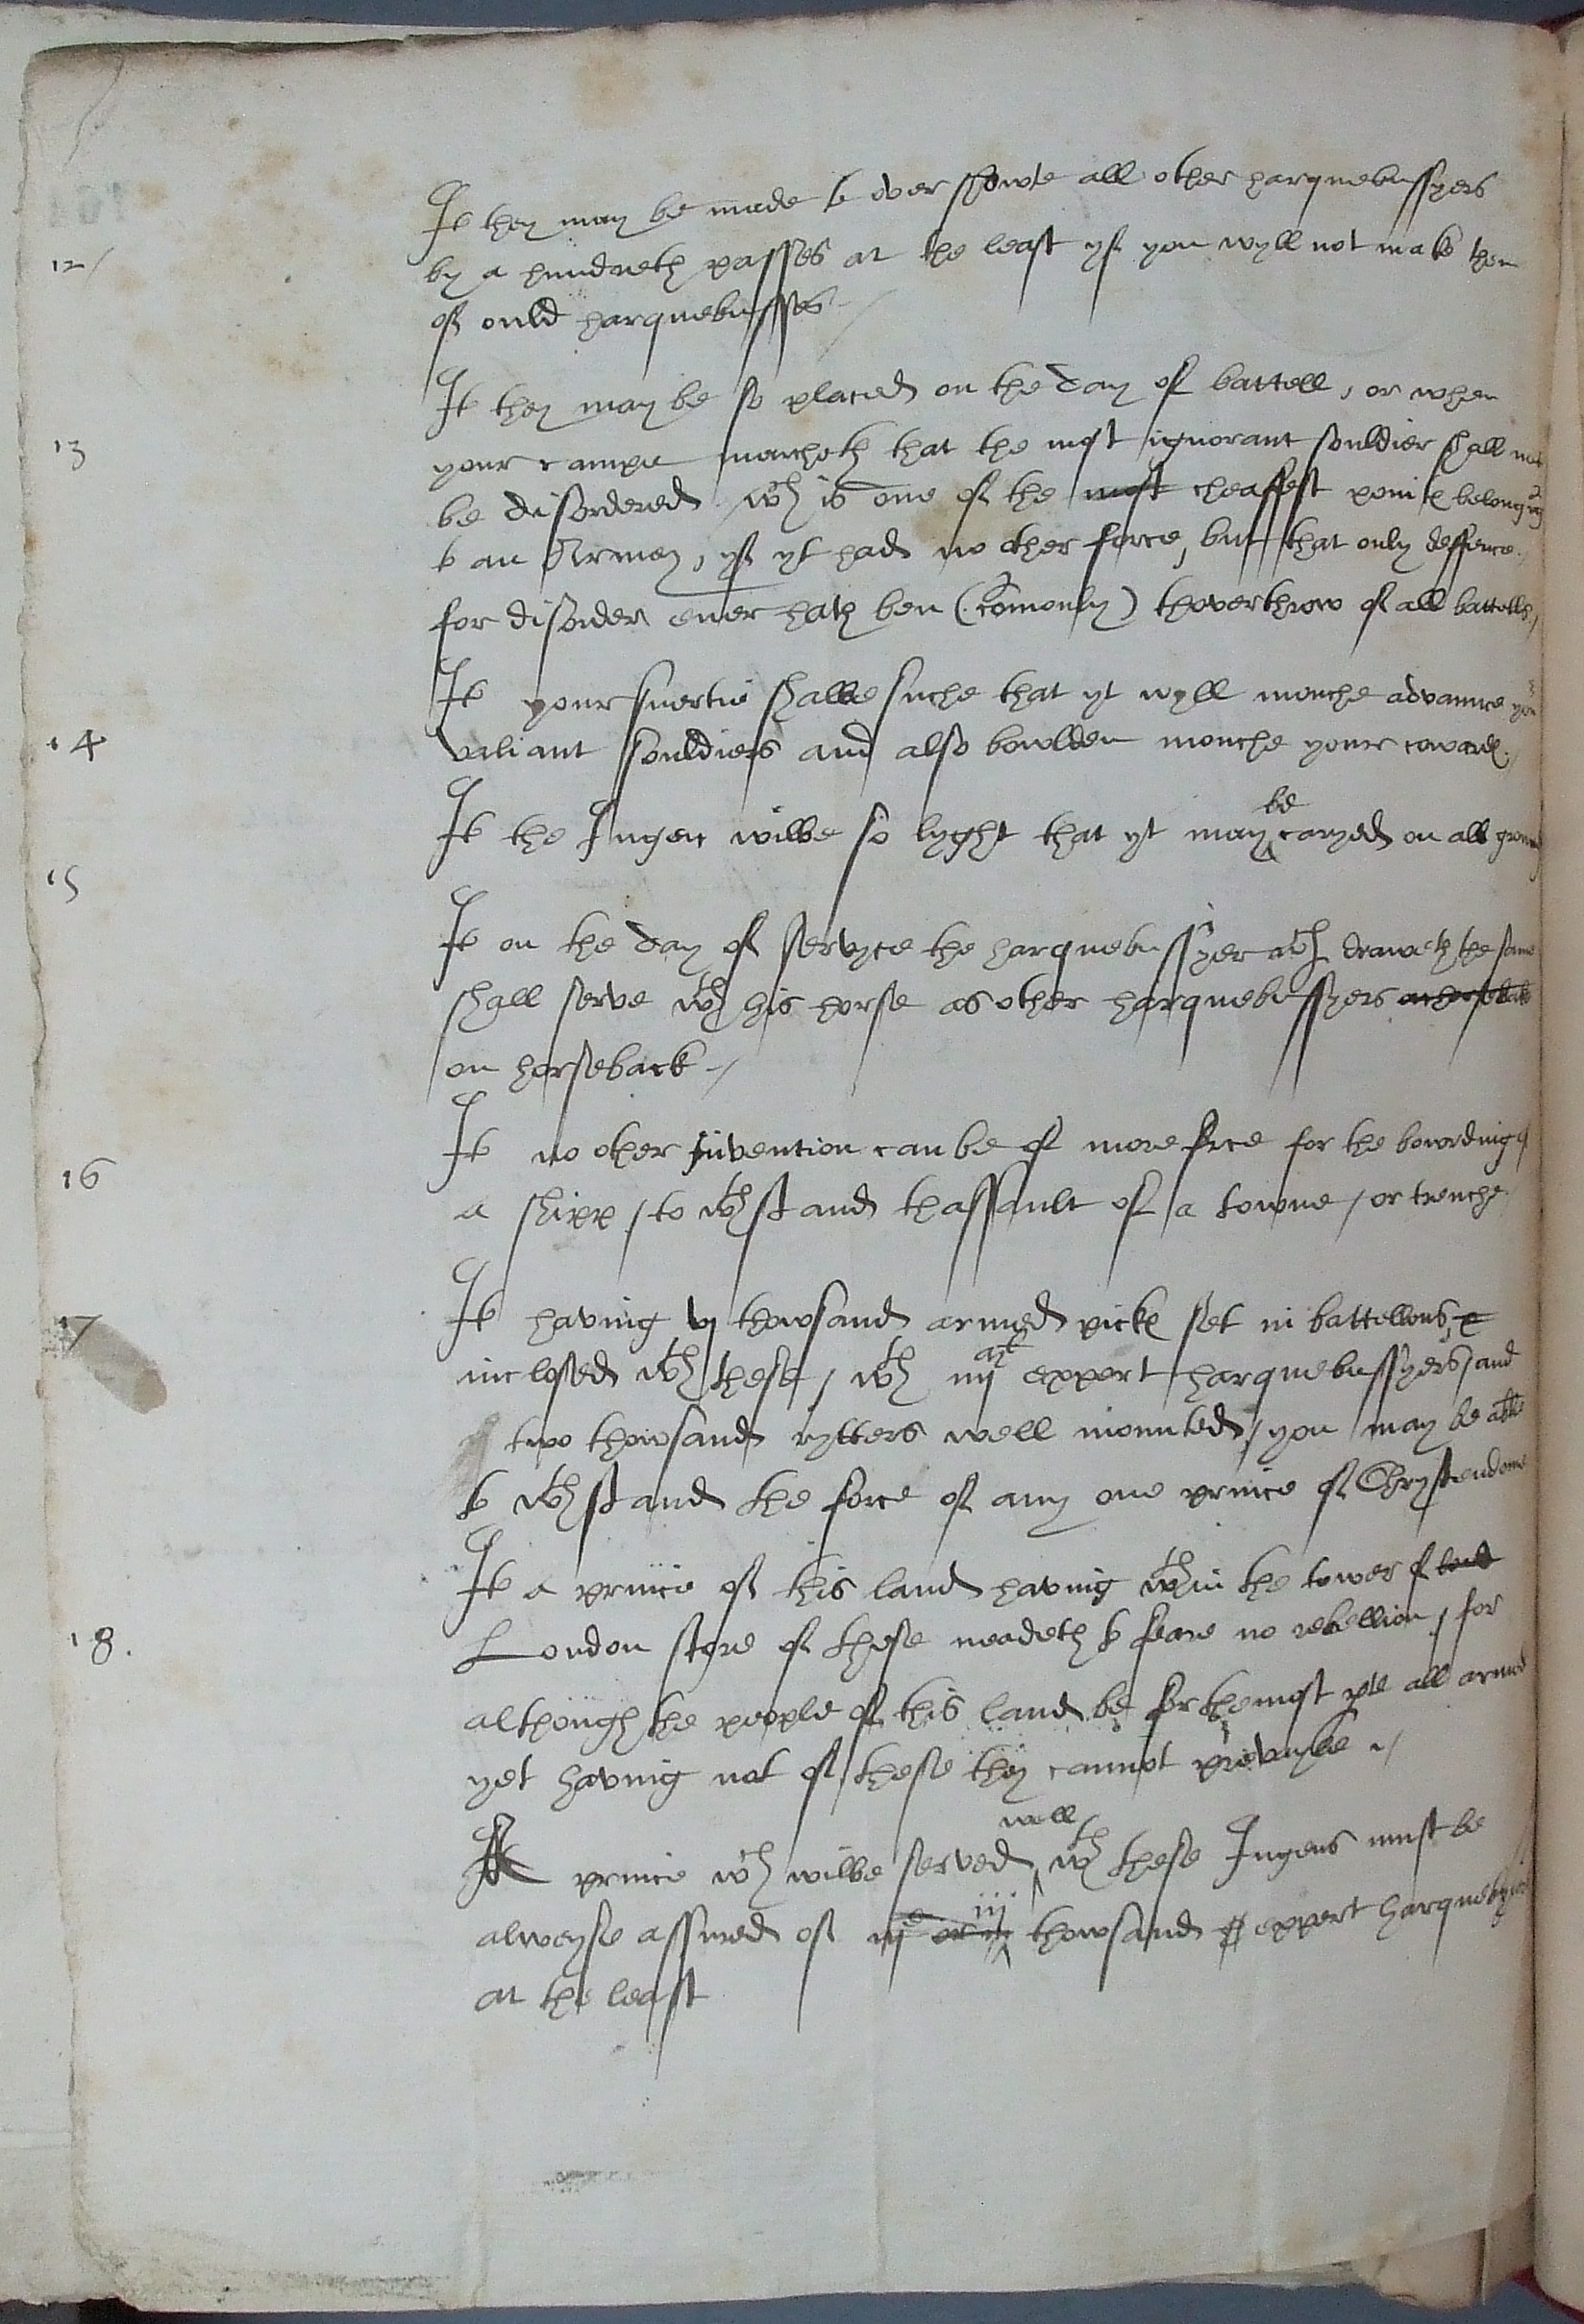 It they may be made to over showte all other harquebussyers
12/
by a hundreth passes at the least yf you wyll not make them
of ould harquebusses /
It they may be so placed on the day of battell, or when
13
your campe marcheth that the most ignorant souldier shall not
be disordered / wch is one of the most cheaffest pointe belonging
to an Armey, yf yt had no other force, but that only deffence /
for disorder ever hath ben (comonly) thoverthrow of all battells /
It your suertie shalbe suche that yt wyll mouche advaunce your
14
valiant souldiers and also bowlden mouche your cowards /
be
It the Ingen wilbe so lyght that yt may ^ caryed on all ground
15
It on the day of servyce the harquebussyer wch draweth the same
shall serve wth his horse as other harquebussyers on horsebak
on horseback /
It no other invention can be of more force for the bowrding of
16
a shipp / to wthstand thassault of a towne / or trenche /
It having vj thowsand armed picke set in battellons,
17
inclosed wth these / wth iiij expert harquebussyers / and
two thowsand rytters well mounted / you may be able
to wthstand the force of any one prince of Chrystendome
It a prince of this land having wthin the tower of
18.
London store of these neadeth to feare no rebellion / for
although the people of this land be for the most pte all armed
yet having not of these they cannot prevayle /
well
A prince wch wilbe served ^ wth these Ingens must be
iij
alweyse assured of iij or ^ thowsand expert harquebyers
at the least